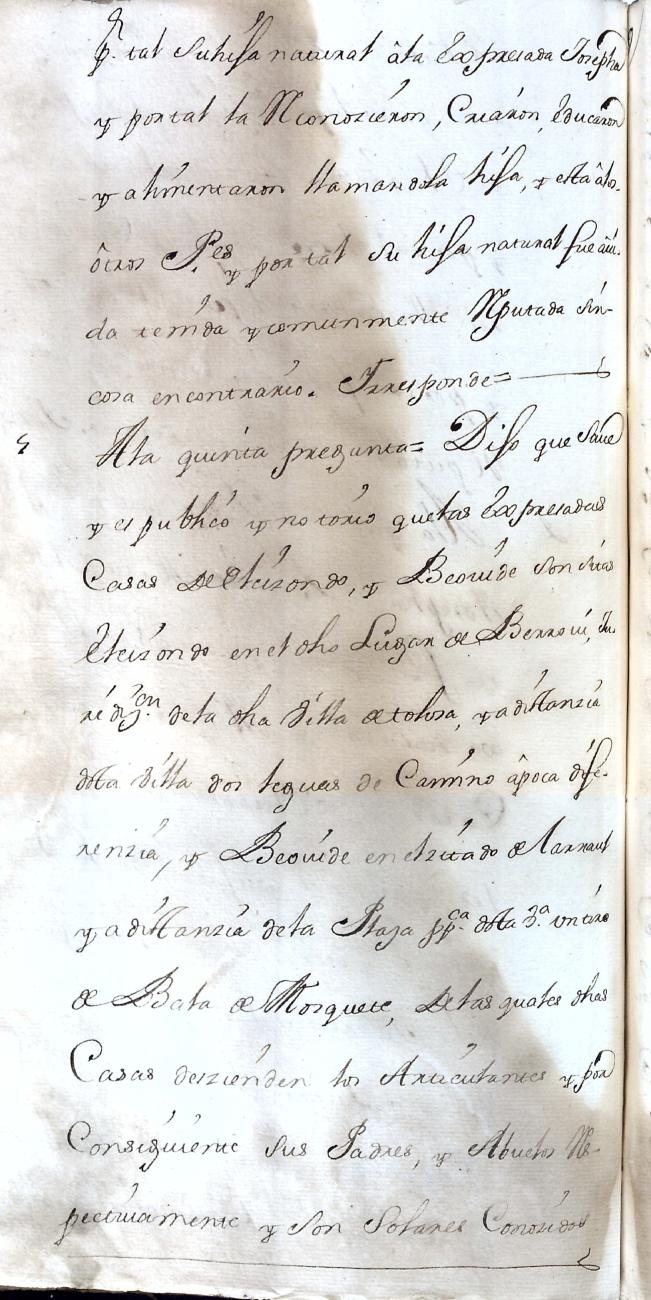 p.r tal su hija natural â la expresada Josepha
y por tal la Reconozieron, Criaron, educaron
y alimentaron llamandola hija, y esta âlos
ôtros P.es y por tal su hija natural fue âui-
da tenida y comunmente Reputada sin
cosa encontrario. Y responde=
5 A la quinta pregunta= Dijo que saue
y es publico y notorio que las expresadas
Casas de Eleizondo, y Beouide son sitas
Eleizondo en el dho Lugar de Berroui, Ju-
risdi.on de la dha Villa de tolosa, y a distanzia
desta Villa dos leguas de Camino âpoca dife-
renzia, y Beouide en el zitado de Larraul
y a distanzia de la Plaza pp.ca desta v.a un tiro
de Bala de Mosquete, de las quales dhas
Casas deszienden los Articulantes y por
Consiguiente sus Padres, y Abuelos Res-
pectiuamente y son Solares Conozidos